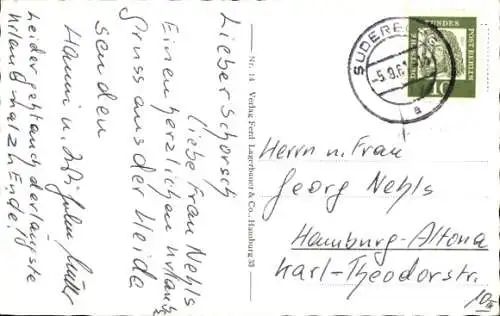 Lieber Schorsch
liebe Frau Nehls
Einen herzlichen Urlaubs
Gruss aus der Heide
senden
Hanni u.
leider geht auch der längste
Urlaub mal zu Ende!
Nr. 14 Verlag Ferd. Lagerbauer & Co., Hamburg 33
SUDERB
-5.9.61
a
BUNDES
POST BERLIN
10
Herrn u. Frau
Georg Nehls
Hamburg-Altona
Karl-Theodorstr.